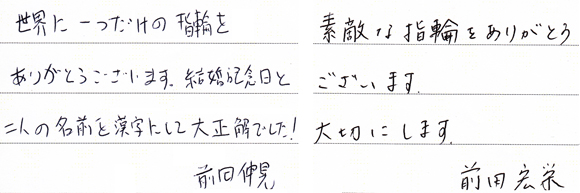 世界に一つだけの指輪を
ありがとうございます。結婚記念日と
二人の名前を漢字にして大正解でした!
前田伸晃
素敵な指輪をありがとう
ございます。
大切にします。
前田宏栄